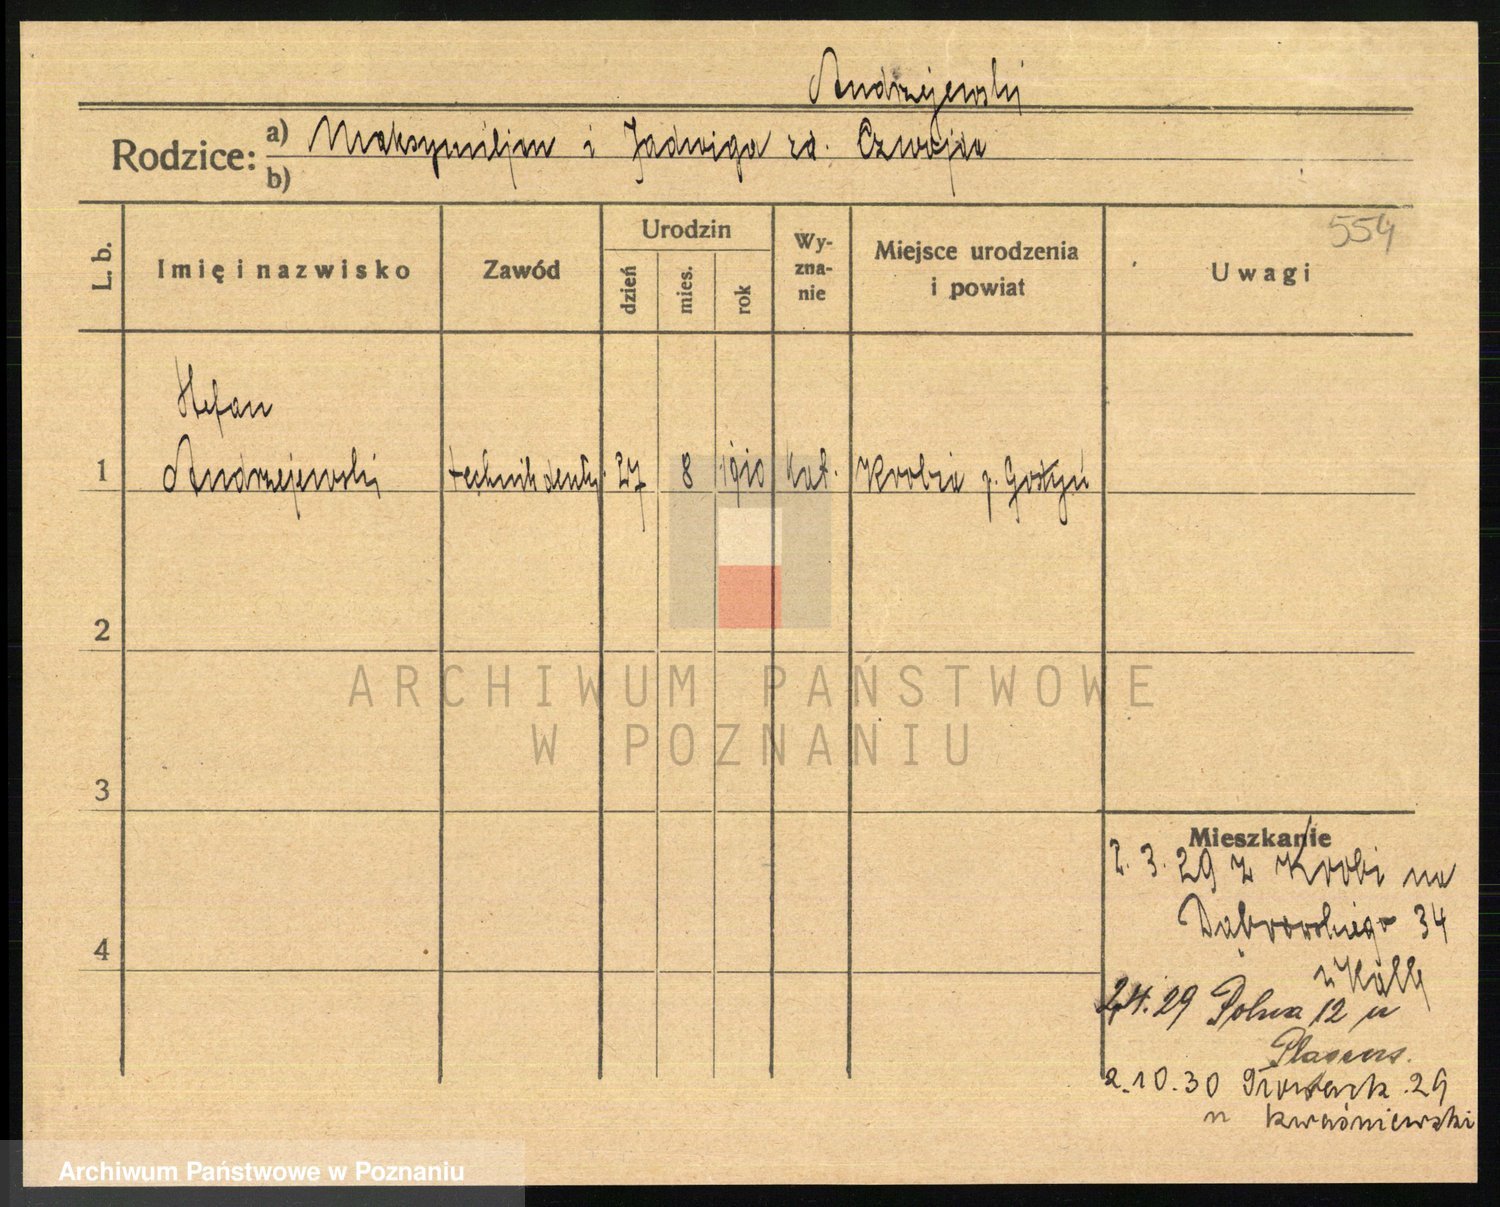 Andrzejewski
Rodzice: a) Maksymiljan i Jadwiga zd. Czwojda
b)
554
L. b. Imię i nazwisko Zawód Urodzin dzień mies. rok Wyznanie Miejsce urodzenia i powiat Uwagi
Stefan
1 Andrzejewski technik dent. 27 8 1910 kat. Krobia p. Gostyń
2
ARCHIWUM PAŃSTWOWE
W POZNANIU
3
Mieszkanie
2. 3. 29 z Krobi na
Dąbrowskiego 34
4
29 Polna 12 u
2.10.30 29
u Kwaśniewski
Archiwum Państwowe w Poznaniu